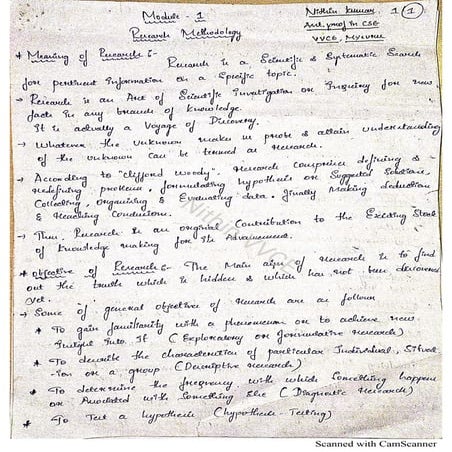 Module - 1
Nithin Kumar
1 1
Asst. prof in CSE
VVCE, Mysuru
Research Methodology
* Meaning of Research :-
Research is a Scientific & Systematic Search
for pertinent information on a Specific topic.
→ Research is an Art of Scientific Investigation or Inquiry for new
facts in any branch of Knowledge.
It is actually a Voyage of Discovery.
→ Whatever the unknown make us probe & attain understanding
of the unknown can be termed as research.
→ According to "Clifford Woody", research comprises defining &
redefining problems, formulating hypothesis or Suggested Solutions,
Collecting, Organizing & Evaluating data, finally Making deduction
& Reaching Conclusion.
→ Thus, Research is an original Contribution to the Existing Stock
of Knowledge making for its Advancement.
* objective of Research :- The Main aim of research is to find
out the truth which is hidden & which has not been discovered
yet.
→ Some of general objectives of research are as follows
* To gain familiarity with a phenomenon or to achieve new
Insight into It (Exploratory or formulative research)
* To describe the characteristics of particular Individual, Situat
-ion or a group (Descriptive research)
* To determine the frequency with which something happens
or Associated with something else (Diagnostic Research)
* To Test a hypothesis (hypothesis-Testing)
Scanned with CamScanner